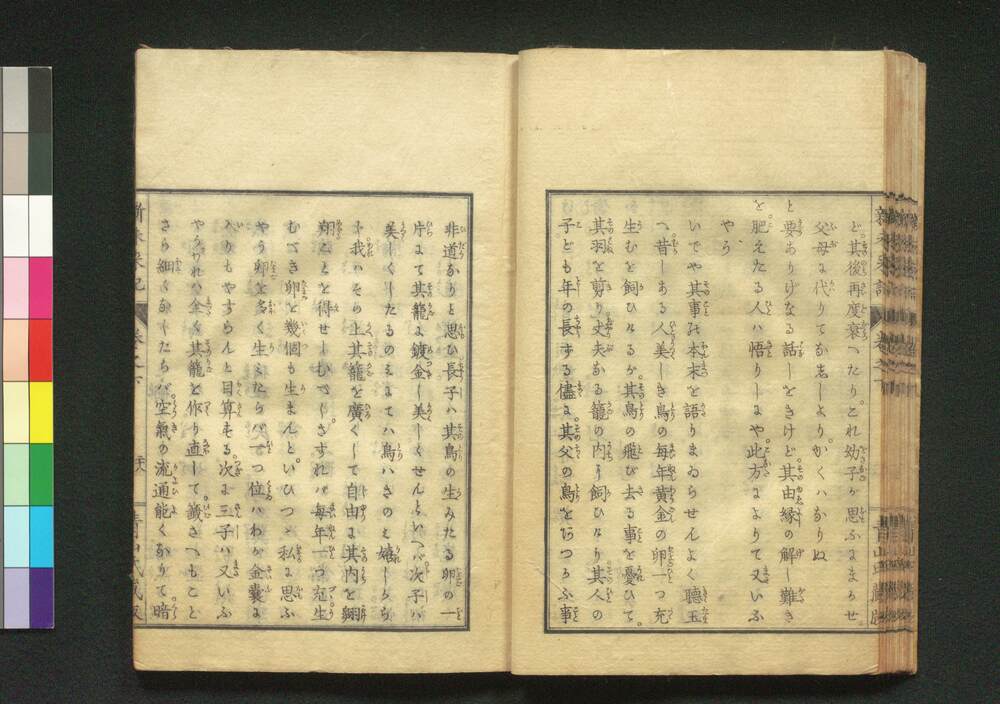 ど其後再度衰へたりとれ幼子が思ふにまらせ。
父母に代りてなせしよりかくハなりぬ
と要ありけなる話しをきけど其由縁の解し難き
を肥えたる人ハ悟りしにや此方によりて又いふ
やう
いでや其事の本末を語りまゐらせんよく聽玉
へ昔しある人美しき鳥の毎年黄金の卵一つ充
生むを飼ひけるが其鳥の飛び去る事を憂ひて。
其羽を剪り丈夫なる籠の内に飼ひけり其人の
子ども年の長ずる儘に其父の鳥をあつかふ事
非道なりと思ひ長子ハ其鳥の生みたる卵の一
片にて其籠に鍍金し美しくせんといへバ次子ハ
美しくしたるのミにてハ鳥ハさのミ嬉しからじ
我ハそら上其籠を廣くして自由に其内を翱
翔ことを得せしむべしさすれバ毎年一つ充生
むべき卵を幾個も生まんといひつゝ私に思ふ
やう卵を多く生ミたらバ一つ位ハわが金嚢に
ハりもやすらんと目算せる次に三子ハ又いふ
やうわれハ全く其籠を作り直して籤さへもこと
さら細くなしたらバ空氣の流通能くなりて暗
新未来記
卷之下
青山氏藏版